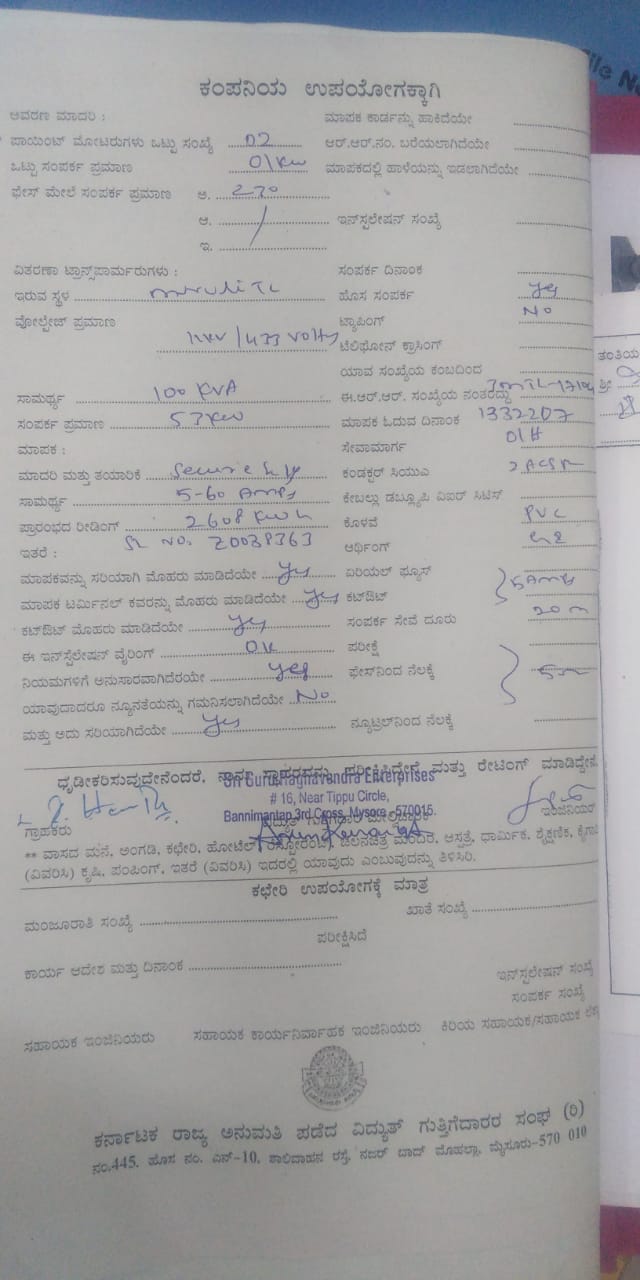 File No
ಕಂಪನಿಯ ಉಪಯೋಗಕ್ಕಾಗಿ
ಆವರಣ ಮಾದರಿ : ಮಾಪಕ ಕಾರ್ಡನ್ನು ಹಾಕಿದೆಯೇ
ಪಾಯಿಂಟ್ ಮೋಟರುಗಳು ಒಟ್ಟು ಸಂಖ್ಯೆ 02 ಆರ್.ಆರ್.ನಂ. ಬರೆಯಲಾಗಿದೆಯೇ
ಒಟ್ಟು ಸಂಪರ್ಕ ಪ್ರಮಾಣ 01KW ಮಾಪಕದಲ್ಲಿ ಹಾಳೆಯನ್ನು ಇಡಲಾಗಿದೆಯೇ
ಫೇಸ್ ಮೇಲೆ ಸಂಪರ್ಕ ಪ್ರಮಾಣ ಅ. 230
ಆ. ಇನ್‌ಸ್ಟಲೇಷನ್ ಸಂಖ್ಯೆ
ಇ.
ವಿತರಣಾ ಟ್ರಾನ್ಸ್‌ಫಾರ್ಮರುಗಳು : ಸಂಪರ್ಕ ದಿನಾಂಕ
ಇರುವ ಸ್ಥಳ ಹೊಸ ಸಂಪರ್ಕ yes
ವೋಲ್ಟೇಜ್ ಪ್ರಮಾಣ ಟ್ಯಾಪಿಂಗ್ No
11KV/433 Volts ಟೆಲಿಫೋನ್ ಕ್ರಾಸಿಂಗ್
ಯಾವ ಸಂಖ್ಯೆಯ ಕಂಬದಿಂದ
ತಂತಿಯ
ಸಾಮರ್ಥ್ಯ 100 KVA ಈ.ಆರ್.ಆರ್. ಸಂಖ್ಯೆಯ ನಂತರದ್ದು
ಶ್ರೀ
ಸಂಪರ್ಕ ಪ್ರಮಾಣ 53KW ಮಾಪಕ ಓದುವ ದಿನಾಂಕ 1332207
ಮಾಪಕ : ಸೇವಾಮಾರ್ಗ O/H
ಮಾದರಿ ಮತ್ತು ತಯಾರಿಕೆ Secure ಕಂಡಕ್ಟರ್ ಸಿಯುಎ 2 ACSR
ಸಾಮರ್ಥ್ಯ 5-60 Amps ಕೇಬಲ್ಲು ಡಬ್ಲ್ಯೂಪಿ ವಿಐರ್ ಸಿಟಿಸ್
ಪ್ರಾರಂಭದ ರೀಡಿಂಗ್ 2608 KWh ಕೊಳವೆ PVC
ಇತರೆ : Sl No. Z0038363 ಆರ್ಥಿಂಗ್
ಮಾಪಕವನ್ನು ಸರಿಯಾಗಿ ಮೊಹರು ಮಾಡಿದೆಯೇ yes ಏರಿಯಲ್ ಫ್ಯೂಸ್
ಮಾಪಕ ಟರ್ಮಿನಲ್ ಕವರನ್ನು ಮೊಹರು ಮಾಡಿದೆಯೇ yes ಕಟ್‌ಔಟ್ 5Amps
ಕಟ್‌ಔಟ್ ಮೊಹರು ಮಾಡಿದೆಯೇ yes ಸಂಪರ್ಕ ಸೇವೆ ದೂರು 20 m
ಈ ಇನ್‌ಸ್ಟಲೇಷನ್ ವೈರಿಂಗ್ OK ಪರೀಕ್ಷೆ
ನಿಯಮಗಳಿಗೆ ಅನುಸಾರವಾಗಿದೆರಯೇ yes ಫೇಸ್‌ನಿಂದ ನೆಲಕ್ಕೆ
ಯಾವುದಾದರೂ ನ್ಯೂನತೆಯನ್ನು ಗಮನಿಸಲಾಗಿದೆಯೇ No
ಮತ್ತು ಅದು ಸರಿಯಾಗಿದೆಯೇ yes ನ್ಯೂಟ್ರಲ್‌ನಿಂದ ನೆಲಕ್ಕೆ
ಧೃಡೀಕರಿಸುವುದೇನೆಂದರೆ, ನಾನು ಪರೀಕ್ಷಿಸಿದ್ದೇನೆ ಮತ್ತು ರೇಟಿಂಗ್ ಮಾಡಿದ್ದೇನೆ
Sri Guru Raghavendra Enterprises
# 16, Near Tippu Circle,
Bannimantap 3rd Cross, Mysore - 570015.
ಗ್ರಾಹಕರು ಇಂಜಿನಿಯರ್
** ವಾಸದ ಮನೆ, ಅಂಗಡಿ, ಕಛೇರಿ, ಹೋಟೆಲ್, ರೆಸ್ಟೋರೆಂಟ್, ಚಲನಚಿತ್ರ ಮಂದಿರ, ಆಸ್ಪತ್ರೆ, ಧಾರ್ಮಿಕ, ಶೈಕ್ಷಣಿಕ, ಕೈಗಾ
(ವಿವರಿಸಿ) ಕೃಷಿ, ಪಂಪಿಂಗ್, ಇತರೆ (ವಿವರಿಸಿ) ಇದರಲ್ಲಿ ಯಾವುದು ಎಂಬುವುದನ್ನು ತಿಳಿಸಿರಿ.
ಕಛೇರಿ ಉಪಯೋಗಕ್ಕೆ ಮಾತ್ರ
ಮಂಜೂರಾತಿ ಸಂಖ್ಯೆ ಖಾತೆ ಸಂಖ್ಯೆ
ಪರೀಕ್ಷಿಸಿದೆ
ಕಾರ್ಯ ಆದೇಶ ಮತ್ತು ದಿನಾಂಕ ಇನ್‌ಸ್ಟಲೇಷನ್ ಸಂಖ್ಯೆ
ಸಂಪರ್ಕ ಸಂಖ್ಯೆ
ಸಹಾಯಕ ಇಂಜಿನಿಯರು ಸಹಾಯಕ ಕಾರ್ಯನಿರ್ವಾಹಕ ಇಂಜಿನಿಯರು ಕಿರಿಯ ಸಹಾಯಕ/ಸಹಾಯಕ ಲೆಕ್ಕ
ಕರ್ನಾಟಕ ರಾಜ್ಯ ಅನುಮತಿ ಪಡೆದ ವಿದ್ಯುತ್ ಗುತ್ತಿಗೆದಾರರ ಸಂಘ (ರಿ)
ನಂ.445, ಹೊಸ ನಂ. ಎನ್-10, ಶಾಲಿವಾಹನ ರಸ್ತೆ, ನಜರ್ ಬಾದ್ ಮೊಹಲ್ಲಾ, ಮೈಸೂರು-570 010